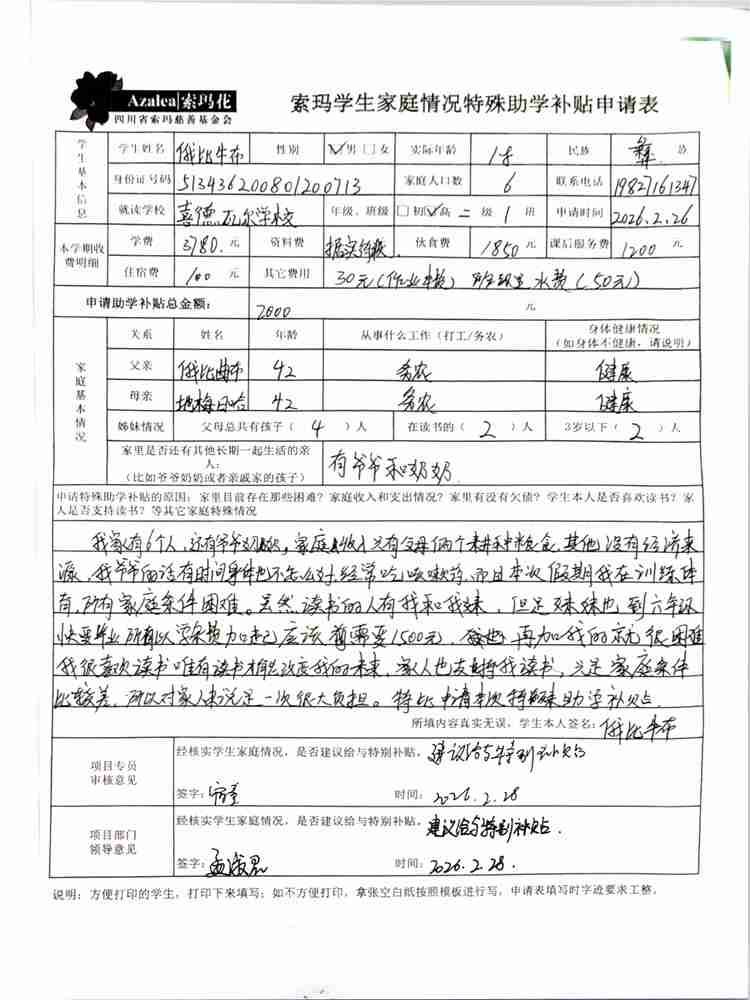 Azalea|索玛花
四川省索玛慈善基金会
索玛学生家庭情况特殊助学补贴申请表
学生基本信息
学生姓名 俄比牛布 性别 ☑男 □女 实际年龄 18 民族 彝 族
身份证号码 513436200801200713 家庭人口数 6 联系电话 19827161347
就读学校 喜德瓦尔学校 年级、班级 □初☑高 二 级 1 班 申请时间 2026.2.26
本学期收费明细
学费 3780 元 资料费 据实结账 伙食费 1850 元 课后服务费 1200 元
住宿费 100 元 其它费用 30元(作业本费) 水费(50元)
申请助学补贴总金额: 2000 元
家庭基本情况
关系 姓名 年龄 从事什么工作(打工/务农) 身体健康情况(如身体不健康,请说明)
父亲 俄比曲布 42 务农 健康
母亲 地梅日哈 42 务农 健康
姊妹情况 父母总共有孩子( 4 )人 在读书的( 2 )人 3岁以下( 2 )人
家里是否还有其他长期一起生活的亲人:
(比如爷爷奶奶或者亲戚家的孩子)
有爷爷和奶奶
申请特殊助学补贴的原因:家里目前存在那些困难?家庭收入和支出情况?家里有没有欠债?学生本人是否喜欢读书?家
人是否支持读书?等其它家庭特殊情况
我家有6个人,还有爷爷奶奶,家庭收入只有父母俩个耕种粮食,其他没有经济来
源,我爷爷的话有时间身体也不怎么好,经常吃咳嗽药,而且本次假期我在训练体
育,所有家庭条件困难。虽然读书的人有我和我妹,但是妹妹也到六年级
快要毕业所以学杂费加起应该需要1500元,再加我的就很困难
我很喜欢读书唯有读书才能改变我的未来,家人也支持我读书,只是家庭条件
比较差,所以对家人来说是一次很大负担。特此申请本次特殊助学补贴
所填内容真实无误,学生本人签名: 俄比牛布
项目专员审核意见
经核实学生家庭情况,是否建议给与特别补贴, 建议给与特别补贴
签字: 时间: 2026.2.28
项目部门领导意见
经核实学生家庭情况,是否建议给与特别补贴, 建议给与特别补贴.
签字: 时间: 2026.2.28.
说明:方便打印的学生,打印下来填写;如不方便打印,拿张空白纸按照模板进行写,申请表填写时字迹要求工整。